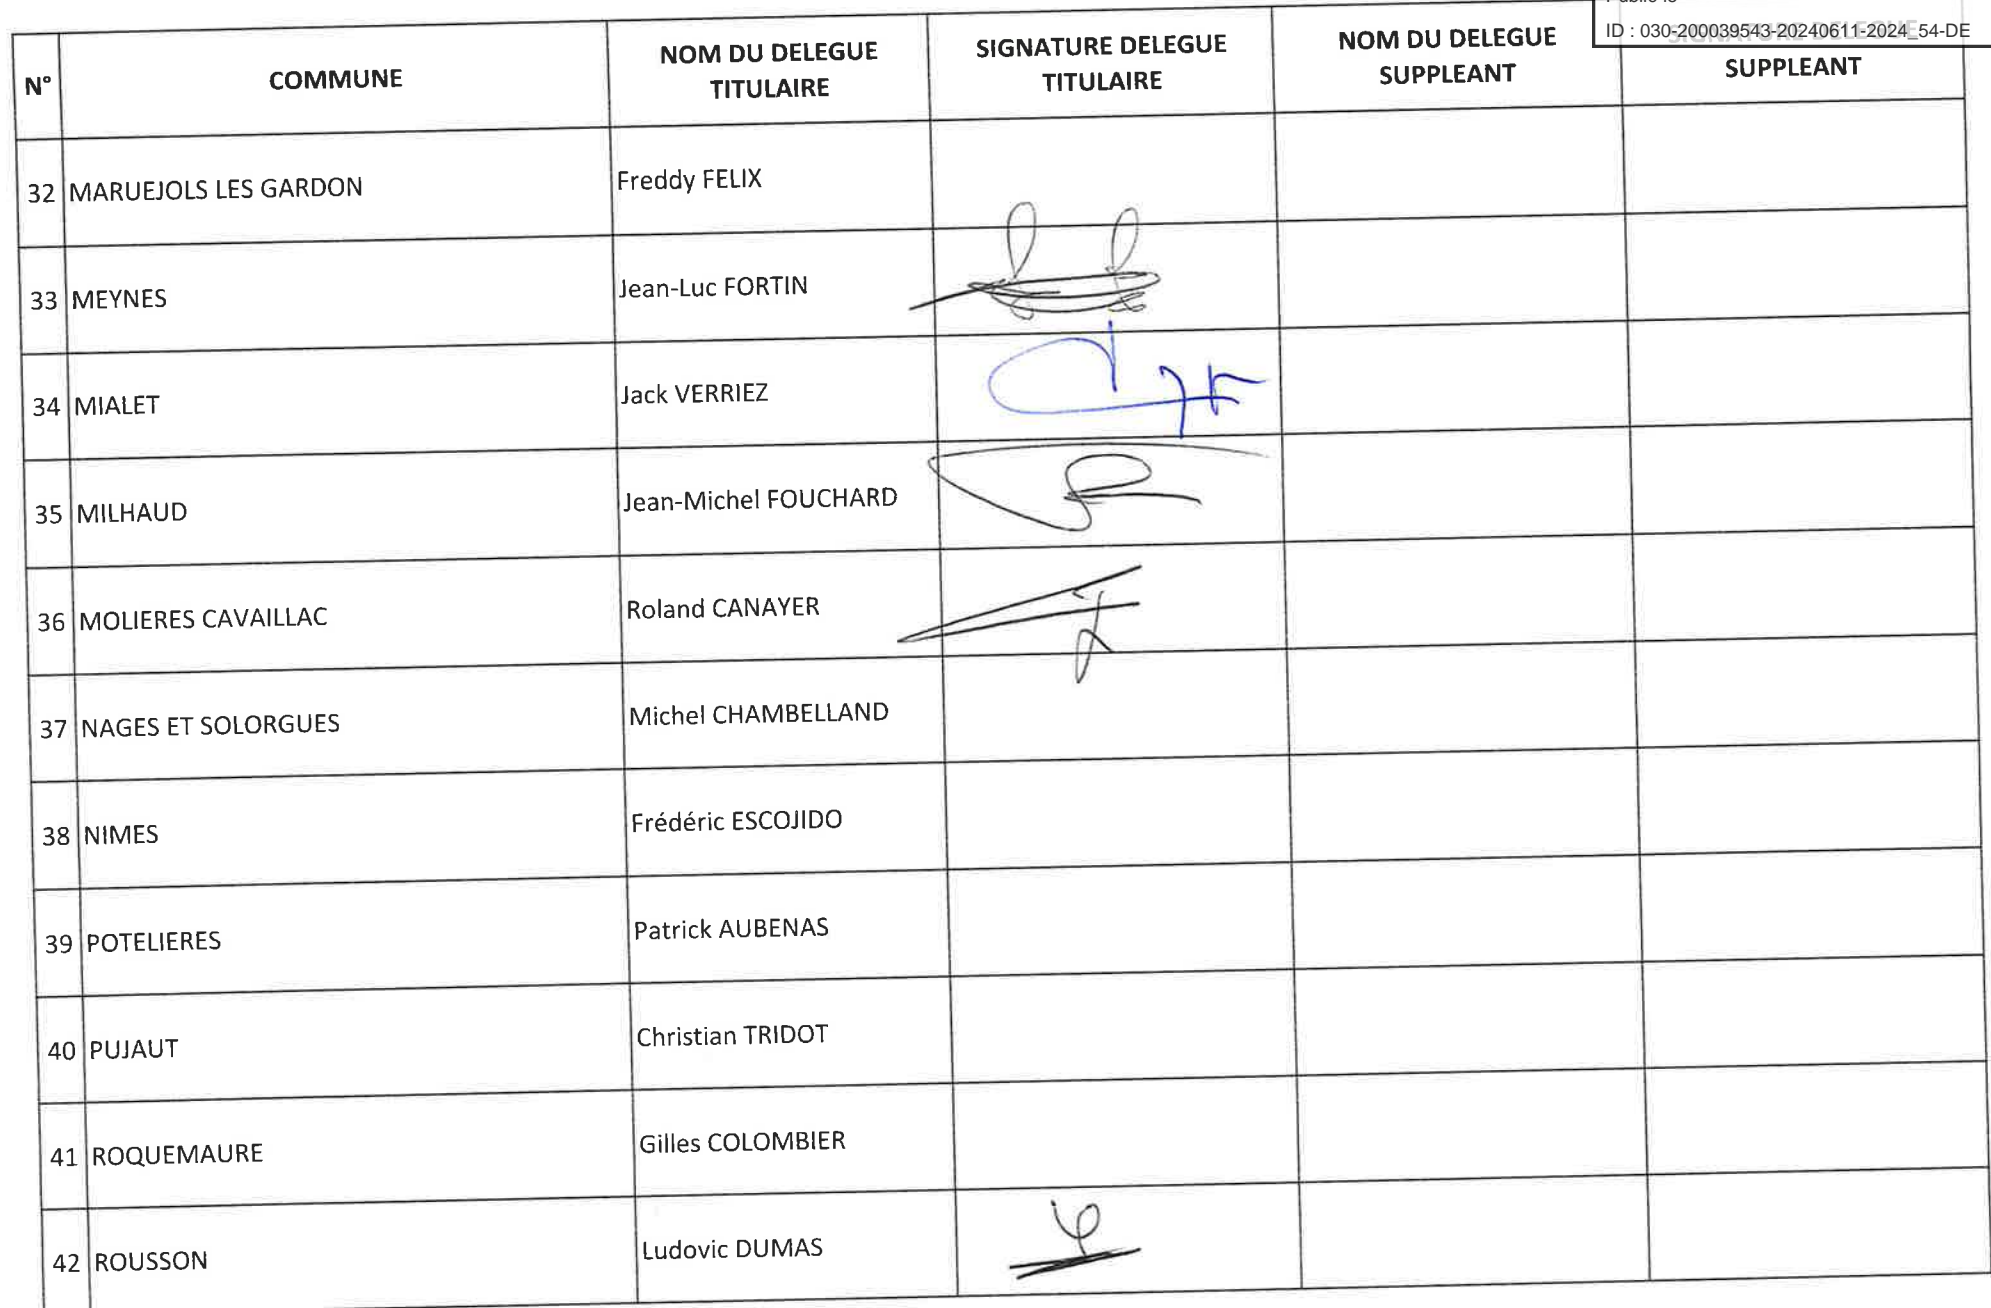 ID : 030-200039543-20240611-2024_54-DE
N° COMMUNE NOM DU DELEGUE TITULAIRE SIGNATURE DELEGUE TITULAIRE NOM DU DELEGUE SUPPLEANT SIGNATURE DELEGUE SUPPLEANT
32 MARUEJOLS LES GARDON Freddy FELIX
33 MEYNES Jean-Luc FORTIN
34 MIALET Jack VERRIEZ
35 MILHAUD Jean-Michel FOUCHARD
36 MOLIERES CAVAILLAC Roland CANAYER
37 NAGES ET SOLORGUES Michel CHAMBELLAND
38 NIMES Frédéric ESCOJIDO
39 POTELIERES Patrick AUBENAS
40 PUJAUT Christian TRIDOT
41 ROQUEMAURE Gilles COLOMBIER
42 ROUSSON Ludovic DUMAS